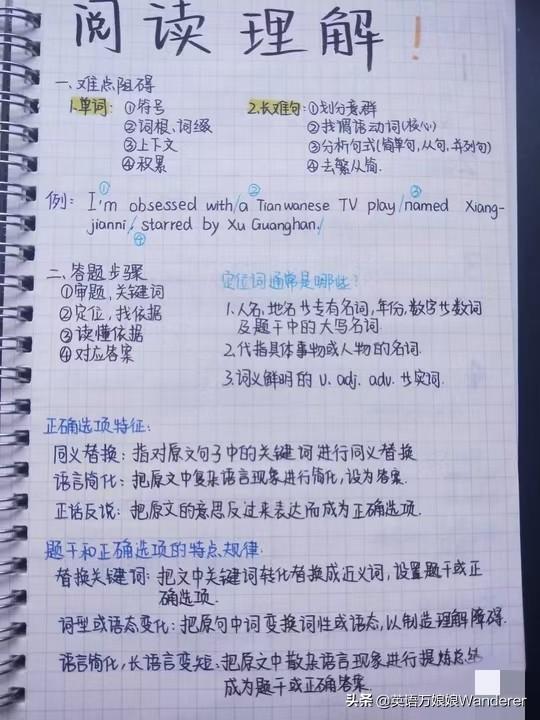 阅读理解!
一、难点阻碍
1.单词: ①符号
②词根、词缀
③上下文
④积累
2.长难句: ①划分意群
②找谓语动词(核心)
③分析句式(简单句,从句,并列句)
④去繁从简.
例: I'm obsessed with/a Tianwanese TV play/named Xiang-
jianni/, starred by Xu Guanghan./
① ② ③
④
二、答题步骤
①审题,关键词
②定位,找依据
③读懂依据
④对应答案
定位词通常是哪些?
1.人名,地名等专有名词,年份,数字等数词
及题干中的大写名词.
2.代指具体事物或人物的名词.
3.词义鲜明的 v. adj. adv. 等实词.
正确选项特征:
同义替换: 指对原文句子中的关键词进行同义替换
语言简化: 把原文中复杂语言现象进行简化,设为答案.
正话反说: 把原文的意思反过来表达而成为正确选项.
题干和正确选项的特点规律.
替换关键词: 把文中关键词转化替换成近义词,设置题干或正
确选项.
词型或语态变化: 把原句中词变换词性或语态,以制造理解障碍.
语言简化,长语言变短、把原文中散杂语言现象进行提炼总结
成为题干或正确答案.
头条 @英语万娘娘Wanderer